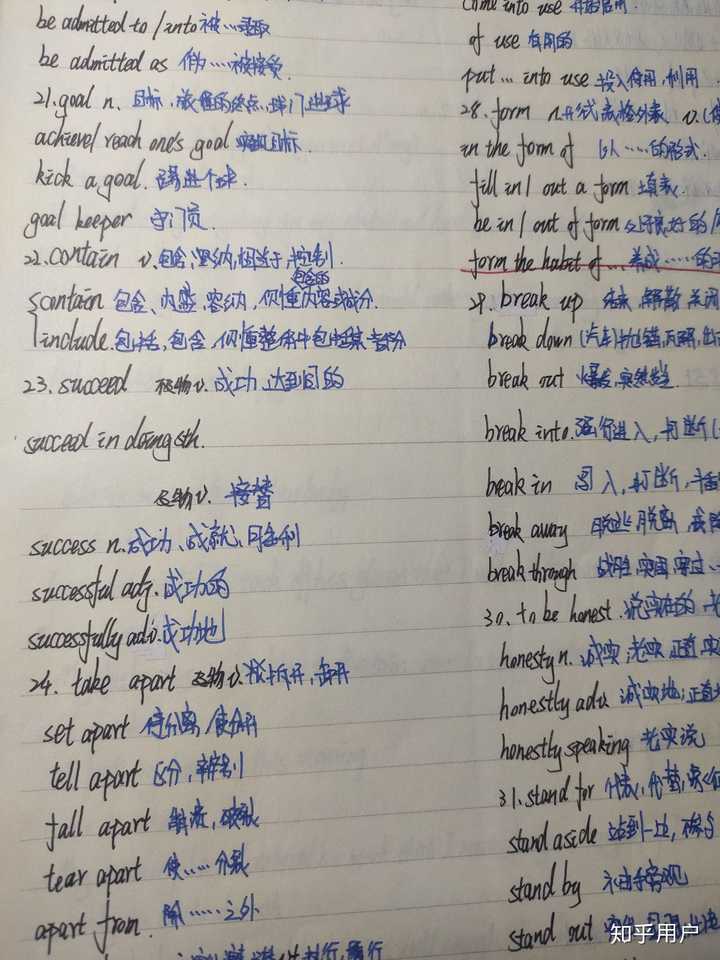 be admitted to / into 被…录取
be admitted as 作为……被接受
21. goal n. 目标, 旅程的终点, 球门, 进球
achieve / reach one's goal 实现目标
kick a goal. 踢进个球.
goal keeper 守门员.
22. contain v. 包含, 容纳, 相当于, 控制.
contain 包含、内盛, 容纳, 侧重内容或成分. 包含的
include. 包括, 包含 侧重整体中包括某一部分
23. succeed 不及物v. 成功, 达到目的
succeed in doing sth.
及物v. 接替
success n. 成功、成就、
successful adj. 成功的
successfully adv. 成功地
24. take apart 及物v. 拆开,
set apart 使分离, 使分开
tell apart 区分, 辨别
fall apart 崩溃, 破裂
tear apart 使……分裂
apart from. 除……之外
come into use 开始启用.
of use 有用的
put... into use 投入使用, 利用
28. form n. 形式 表格 外表 v.
in the form of 以……的形式.
fill in / out a form 填表.
be in / out of form 处于良好的
form the habit of ... 养成……的
29. break up 结束, 解散 关闭
break down (汽车) 抛锚, 瓦解,
break out 爆发, 突然发生
break into. 强行进入, 打断
beak in 闯入, 打断,
break away 脱逃 脱离,
break through 战胜, 突围, 穿过
30. to be honest. 说实在的
honesty n. 诚实, 老实, 正直,
honestly adv. 诚实地; 正直
honestly speaking 老实说
31. stand for 代表, 代替,
stand aside 站到一边,
stand by 袖手旁观
stand out 突出,
知乎用户